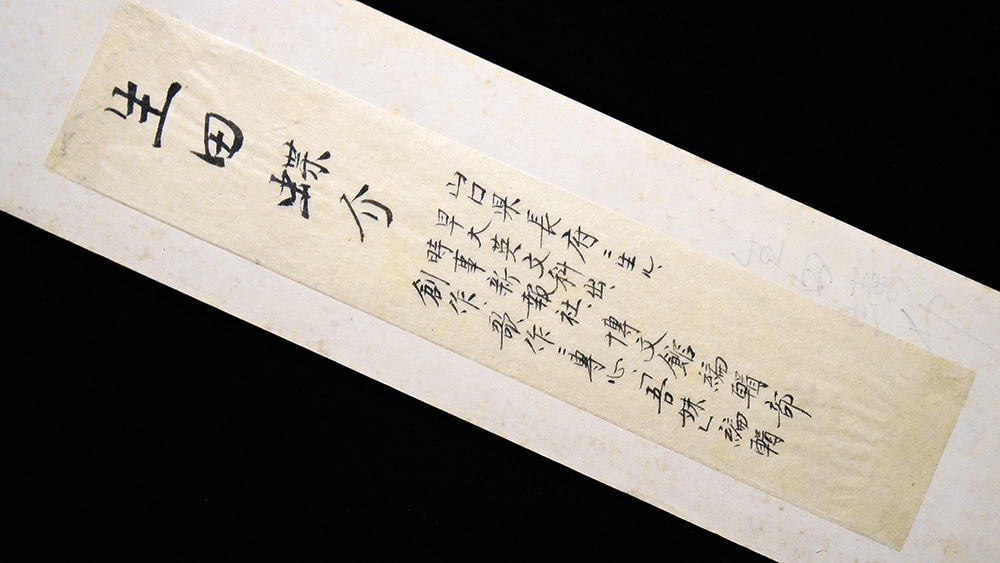 生田蝶介
山口県長府ニ生ル、
早大英文科出、
時事新報社、博文館編輯部
創作、歌作ニ専心、「吾妹」編輯